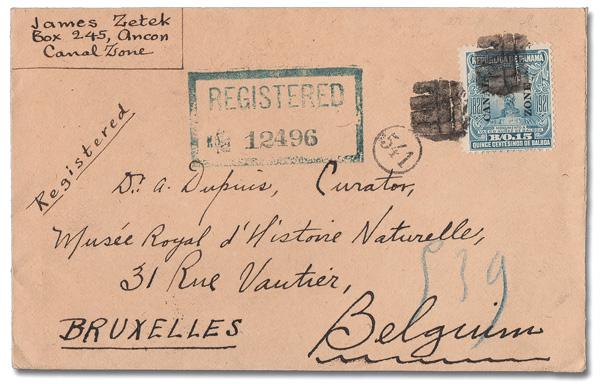 James Zetek
Box 245, Ancon
Canal Zone
REPUBLICA DE PANAMA
1821 1921
CANAL ZONE
B/0.15
QUINCE CENTESIMOS DE BALBOA
REGISTERED
№ 12496
541
Registered
Dr. A. Dupuis, Curator,
Musée Royal d'Histoire Naturelle,
31 Rue Vautier,
539
BRUXELLES
Belgium